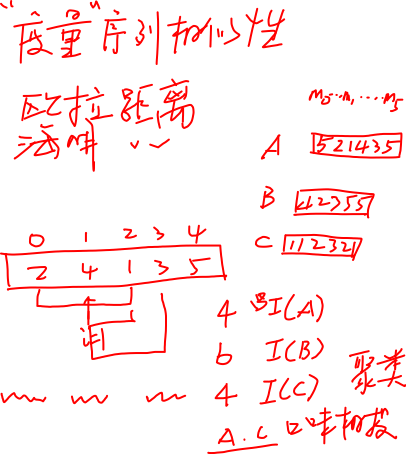 "度量"序列相似性
欧拉距离
海明 〃
m₅…m₁…m₅
A 521435
B 112355
C 112321
0 1 2 3 4
2 4 1 3 5
4 I(A)
6 I(B)
4 I(C) 聚类
A.C 口味相投